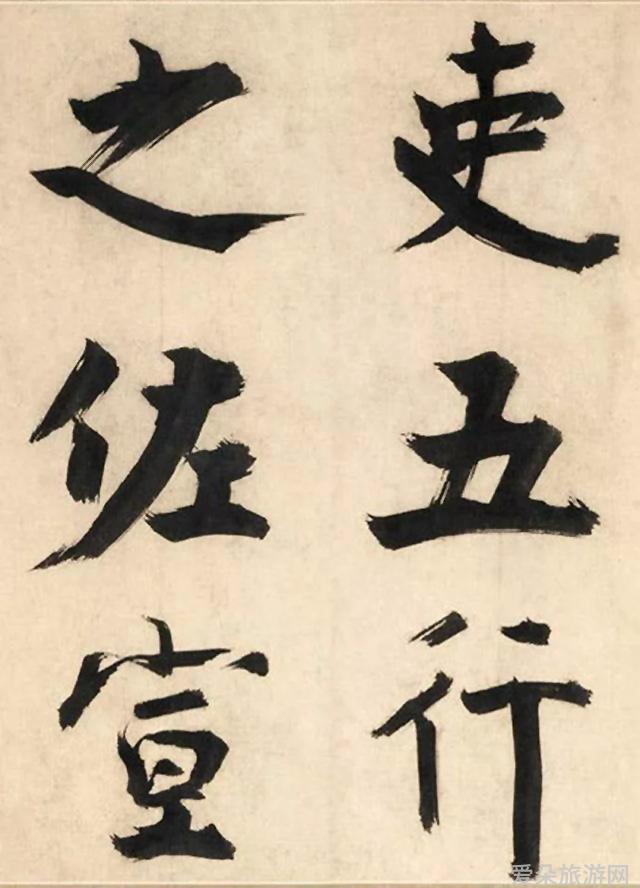 吏五行
之佐宣
爱朵旅游网